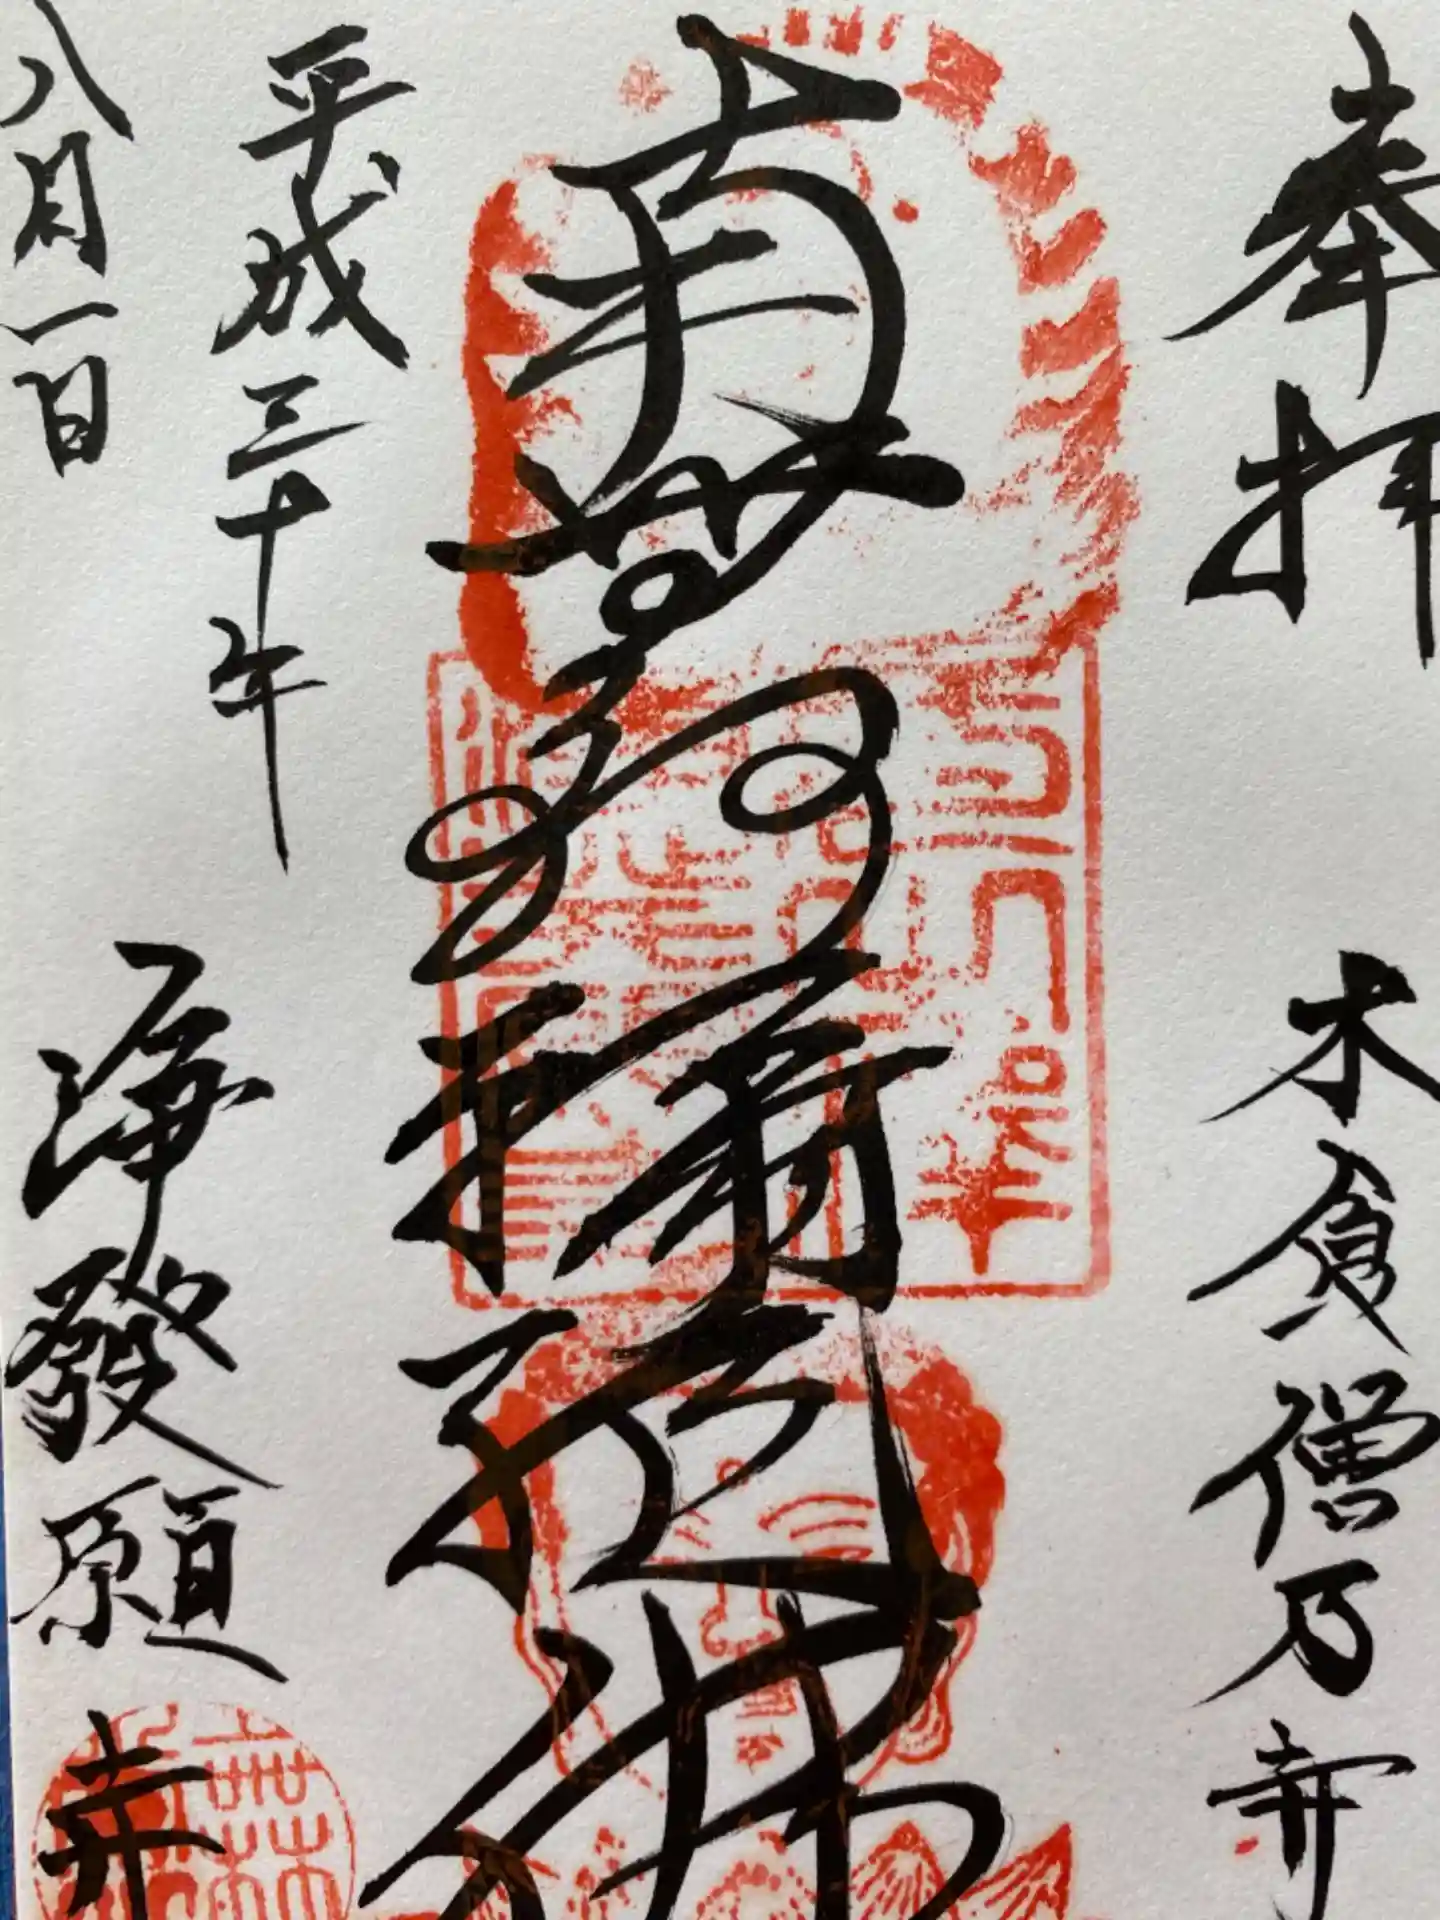 奉拝
木食僧乃寺
南無阿弥陀佛
平成三十年
八月一日
浄發願寺